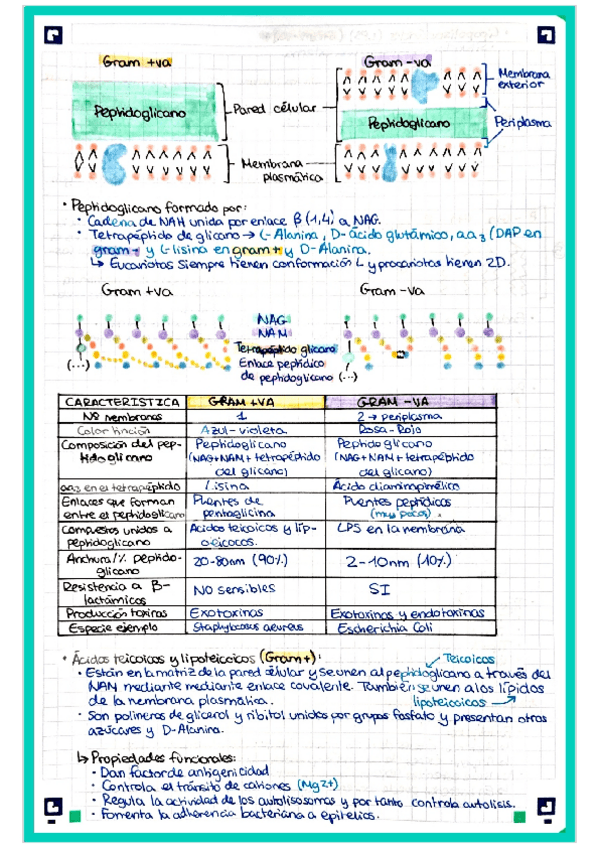 Gram +va
Gram -va
Peptidoglicano
Pared célular
Membrana exterior
Peptidoglicano
Periplasma
Membrana plasmática
· Peptidoglicano formado por:
· Cadena de NAM unida por enlace β (1,4) a NAG.
· Tetrapéptido de glicano → L-Alanina, D-ácido glutámico, aa3 (DAP en
gram - y L-lisina en gram + y D-Alanina.
↳ Eucariotas siempre tienen conformación L y procariotas tienen 2D.
Gram +va
Gram -va
NAG
NAM
Tetrapéptido glicano
Enlace peptídico
de peptidoglicano
(...)
(...)
CARACTERISTICA | GRAM +VA | GRAM -VA
Nº membranas | 1 | 2 → periplasma
Color tinción | Azul-violeta | Rosa-Rojo
Composición del pep-
tidoglicano
Peptidoglicano
(NAG+NAM+tetrapéptido
del glicano)
Peptidoglicano
(NAG+NAM+tetrapéptido
del glicano)
aa3 en el tetrapéptido | Lisina | Ácido diaminimpimélico
Enlaces que forman
entre el peptidoglicano
Puentes de
pentaglicina
Puentes peptídicos
(muy pocos).
Compuestos unidos a
peptidoglicano
Acidos teicoicos y lip-
oteicocos.
LPS en la membrana
Anchura/% peptido-
glicano
20-80nm (90%)
2-10nm (10%)
Resistencia a β-
lactámicos
No sensibles
SI
Producción toxinas | Exotoxinas | Exotoxinas y endotoxinas
Especie ejemplo | Staphylococos aeureus | Escherichia Coli
· Ácidos teicoicos y lipoteicoicos (Gram+):
Teicoicos
· Están en la matriz de la pared célular y se unen al peptidoglicano a través del
NAM mediante mediante enlace covalente. También se unen a los lípidos
de la membrana plasmática.
lipoteicoicos
· Son polímeros de glicerol y ribitol unidos por grupos fosfato y presentan otros
azúcares y D-Alanina.
↳ Propiedades funcionales:
· Dan factor de antigenicidad
· Controla el tránsito de cationes (Mg2+)
· Regula la actividad de los autolisosomas y por tanto controla autolisis.
· Fomenta la adherencia bacteriana a epitelios.